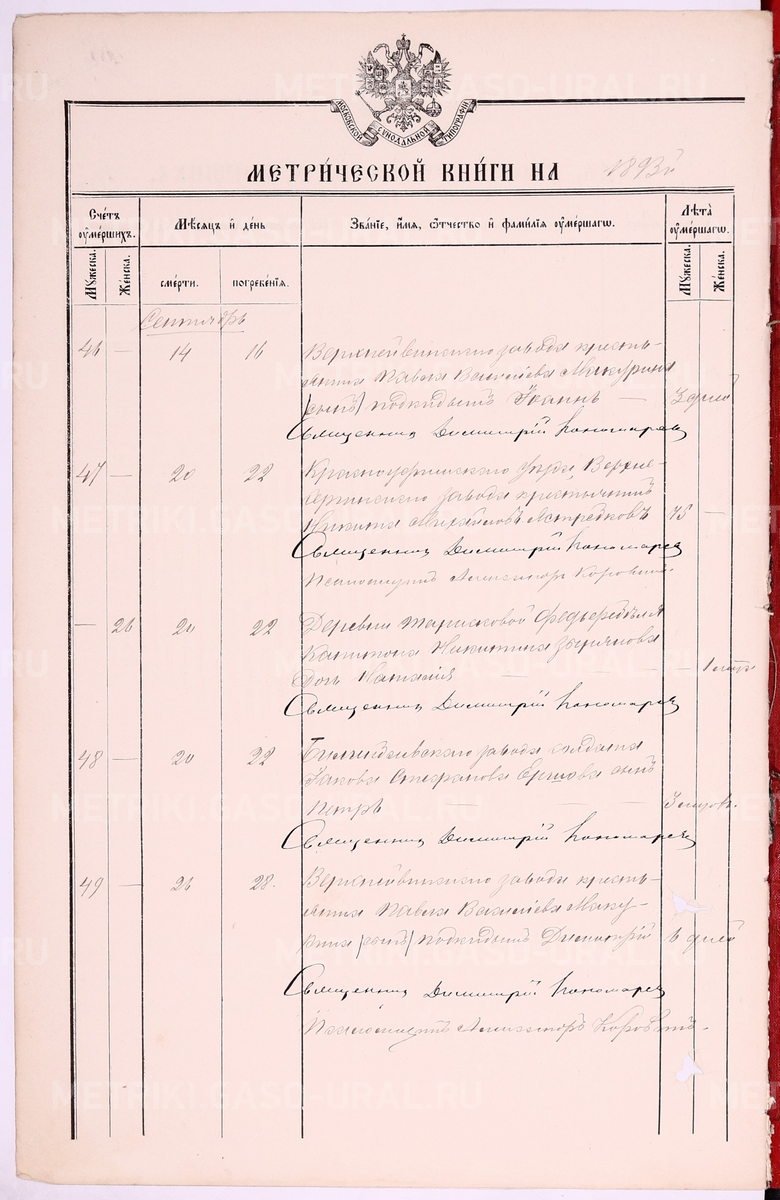 МОСКОВСКОЙ СѴНОДАЛЬНОЙ ТИПОГРАФІИ
МЕТРИ́ЧЕСКОЙ КНИ́ГИ НА 1893й
Счетъ ᲂумершихъ.
Мѣсяцъ и день
Званіе, имя, ѻтчество и фамилія ᲂумершагѡ.
Лѣта ᲂумершагѡ.
Мужеска. Женска. смерти. погребенія. Мужеска. Женска.
Сентябрь
46 — 14 16 Верхнейвинскаго завода кресть-
янина Павла Васильева Макурина
/сынъ/ подкидышъ Іоаннъ — 3 дней
Священникъ Димитрій Пономаревъ
47 — 20 22 Красноуфимскаго уѣзда, Верхне-
сергинскаго завода крестьянинъ
Никита Михайловъ 75 —
Священникъ Димитрій Пономаревъ
Псаломщикъ Александръ Коровинъ
— 26 20 22 Деревни Тарасковой
Капитона Никитина Зырянова
Дочь Наталія — — — 1 мѣс.
Священникъ Димитрій Пономаревъ
48 — 20 22 Билимбаевскаго завода солдата
Іакова Стефанова Ершова сынъ
Петръ — — — 3 мѣсяц.
Священникъ Димитрій Пономаревъ
49 — 26 28. Верхнейвинскаго завода кресть-
янина Павла Васильева Маку-
рина /сынъ/ подкидышъ Димитрій 6 дней
Священникъ Димитрій Пономаревъ
Псаломщикъ Александръ Коровинъ.
METRIKI.GASO-URAL.RU